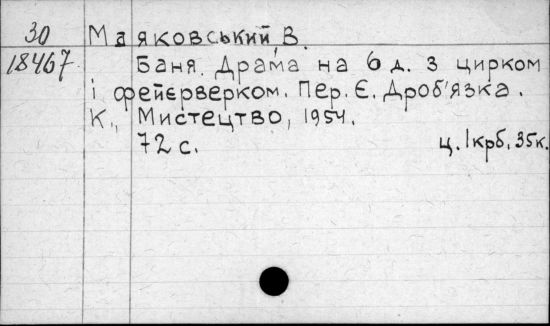 30 Маяковський, В.
18467 Баня. Драма на 6 д. з цирком
і фейєрверком. Пер. Є. Дроб'язка.
К., Мистецтво, 1954.
72 с. ц. 1крб. 35к.